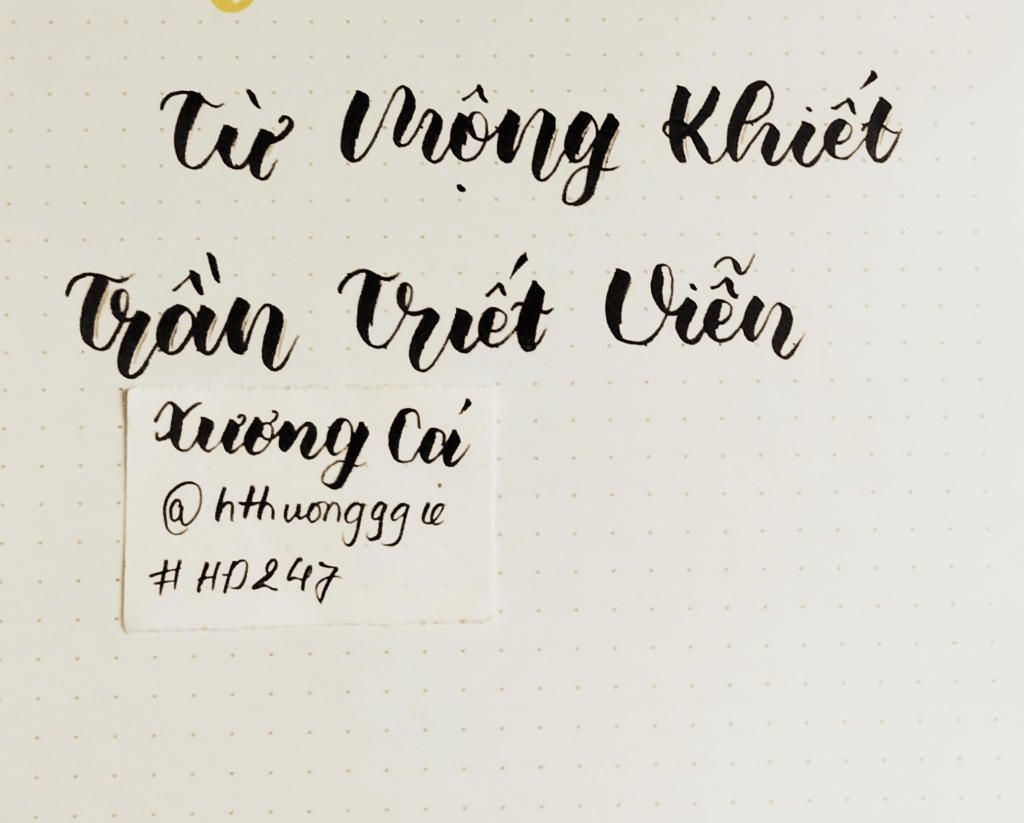 Từ Mộng Khiết
Trần Triết Viễn
Xương Cá
@hthuongggie
#HD247